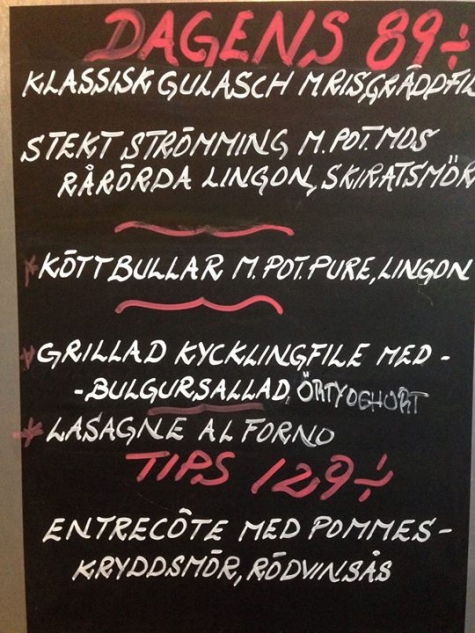 DAGENS 89:-
KLASSISK GULASCH M RIS, GRÄDDFIL
STEKT STRÖMMING M. POT. MOS
RÅRÖRDA LINGON, SKIRATSMÖR
* KÖTTBULLAR M. POT. PURE, LINGON
* GRILLAD KYCKLINGFILE MED -
- BULGURSALLAD, ÖRTYOGHURT
* LASAGNE AL FORNO
TIPS 129:-
ENTRECÔTE MED POMMES -
KRYDDSMÖR, RÖDVINSÅS